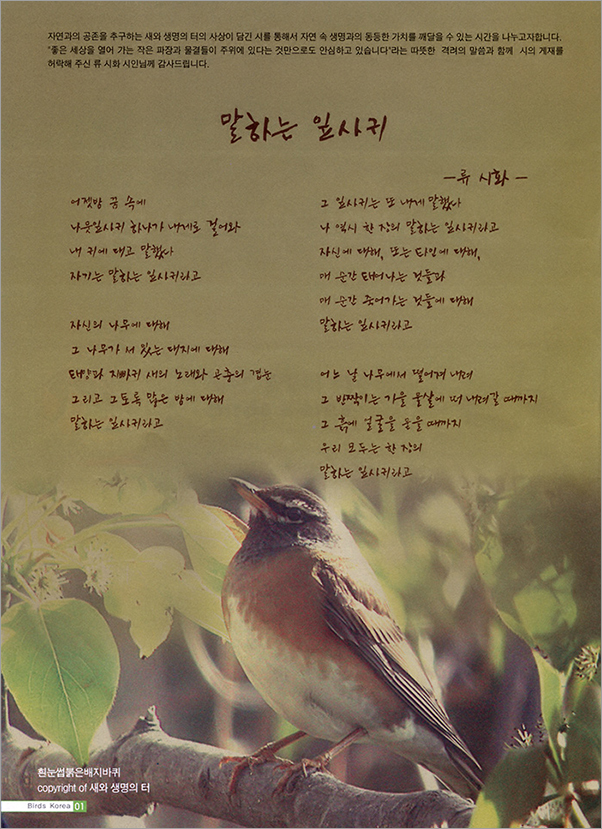 자연과의 공존을 추구하는 새와 생명의 터의 사상이 담긴 시를 통해서 자연 속 생명과의 동등한 가치를 깨달을 수 있는 시간을 나누고자합니다.
"좋은 세상을 열어 가는 작은 파장과 물결들이 주위에 있다는 것만으로도 안심하고 있습니다"라는 따뜻한 격려의 말씀과 함께 시의 게재를
허락해 주신 류 시화 시인님께 감사드립니다.
말하는 잎사귀
－류 시화－
어젯밤 꿈 속에
나뭇잎사귀 하나가 내게로 걸어와
내 귀에 대고 말했다
자기는 말하는 잎사귀라고
자신의 나무에 대해
그 나무가 서 있는 대지에 대해
태양과 지빠귀 새의 노래와 곤충의 껍눈
그리고 그토록 많은 밤에 대해
말하는 잎사귀라고
그 잎사귀는 또 내게 말했다
나 역시 한 장의 말하는 잎사귀라고
자신에 대해, 또는 타인에 대해,
매 순간 태어나는 것들과
매 순간 죽어가는 것들에 대해
말하는 잎사귀라고
어느 날 나무에서 떨어져 내려
그 반짝이는 가을 물살에 떠 내려갈 때까지
그 흙에 얼굴을 묻을 때까지
우리 모두는 한 장의
말하는 잎사귀라고
흰눈썹붉은배지바퀴
copyright of 새와 생명의 터
Birds Korea 01